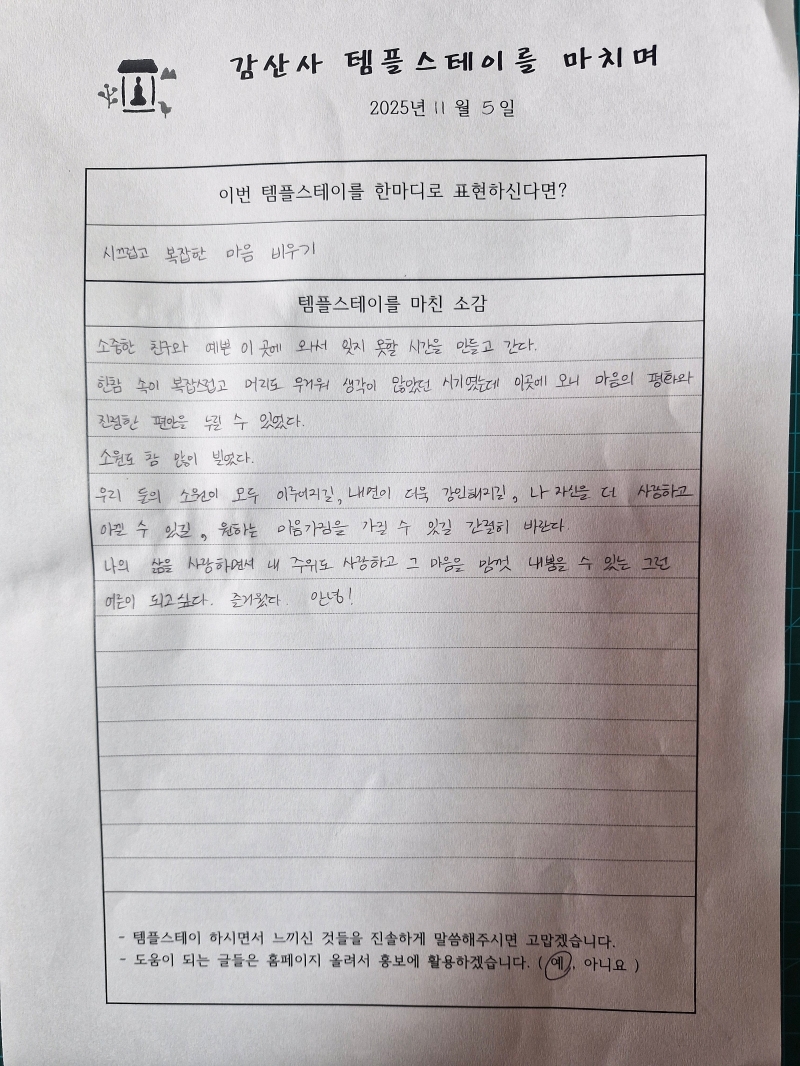 감산사 템플스테이를 마치며
2025년 11월 5일
이번 템플스테이를 한마디로 표현하신다면?
시끄럽고 복잡한 마음 비우기
템플스테이를 마친 소감
소중한 친구와 예쁜 이곳에 와서 잊지 못할 시간을 만들고 간다.
한참 속이 복잡스럽고 머리도 무거워 생각이 많았던 시기였는데 이곳에 오니 마음의 평화와
진정한 편안을 누릴 수 있었다.
소원도 참 많이 빌었다.
우리 둘의 소원이 모두 이루어지길, 내면이 더욱 강인해지길, 나 자신을 더 사랑하고
아낄 수 있길, 원하는 마음가짐을 가질 수 있길 간절히 바란다.
나의 삶을 사랑하면서 내 주위도 사랑하고 그 마음을 맘껏 내뿜을 수 있는 그런
어른이 되고싶다. 즐거웠다. 안녕!
- 템플스테이 하시면서 느끼신 것들을 진솔하게 말씀해주시면 고맙겠습니다.
- 도움이 되는 글들은 홈페이지 올려서 홍보에 활용하겠습니다. ( 예, 아니요 )